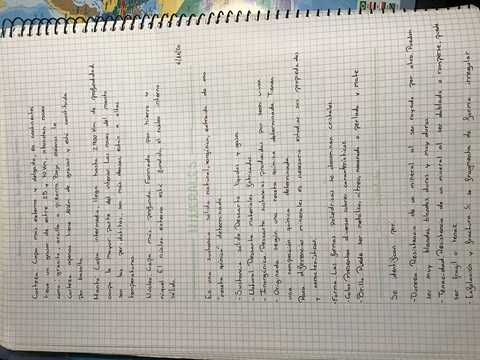 Corteza: Capa más externa y delgada, en continentes
tiene un grosor de entre 25 y 70 Km. abundan rocas
como granito, arcilla o pizarra. Bajo océanos la
corteza tiene 10Km de grosor y está constituida
por basalto.
Manto: Capa intermedia llega hasta 2.900 Km de profundidad,
ocupa la mayor parte del interior. Las rocas del manto
son las peridotitas, son más densas, están a altas
temperaturas.
Núcleo: Capa más profunda. Formada por hierro y
níquel. El núcleo externo está fundido, el núcleo interno
sólido.
MINERALES
Es una sustancia sólida, natural, inorgánica, extraída de una
"receta química" determinada.
- Sustancia sólida: Descarta líquidos y gases.
- Natural: Descarta materiales fabricados.
- Inorgánica: Descarta sustancias producidas por seres vivos.
- Originada según una receta química determinada: Tienen
una composición química determinada.
Para diferenciar minerales es necesario estudiar sus propiedades
y características.
- Forma: Las formas poliédricas se denominan cristales.
- Color: Presentan diversos colores característicos.
- Brillo: Puede ser metálico, vítreo, nacarado o perlado y mate.
Se identifican por:
- Dureza: Resistencia de un mineral al ser rayado por otro. Pueden
ser muy blandos, blandos, duros y muy duros.
- Tenacidad: Resistencia de un mineral al ser doblado o romperse, puede
ser frágil o tenaz.
- Exfoliación y fractura: Si se fragmenta de forma irregular